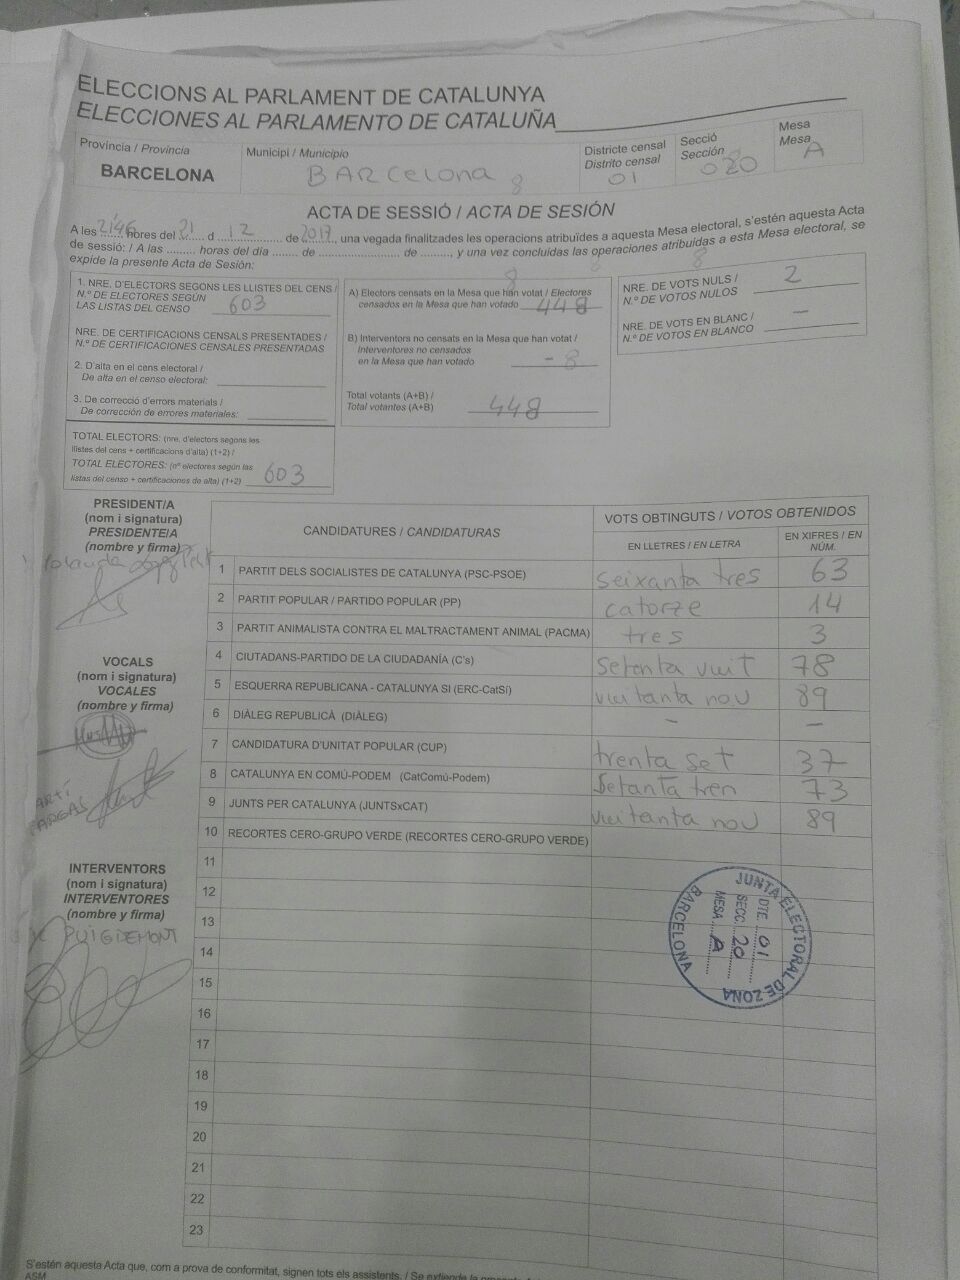 ELECCIONS AL PARLAMENT DE CATALUNYA
ELECCIONES AL PARLAMENTO DE CATALUÑA
Província / Provincia
BARCELONA
Municipi / Municipio
BARCelona
Districte censal
Distrito censal
01
Secció
Sección
020
Mesa
Mesa
A
ACTA DE SESSIÓ / ACTA DE SESIÓN
A les 21'46 hores del 21 d 12 de 2017, una vegada finalitzades les operacions atribuïdes a aquesta Mesa electoral, s'estén aquesta Acta
de sessió: / A las ......... horas del día ........ de .................... de .........., y una vez concluidas las operaciones atribuidas a esta Mesa electoral, se
expide la presente Acta de Sesión:
1. NRE. D'ELECTORS SEGONS LES LLISTES DEL CENS /
N.º DE ELECTORES SEGÚN
LAS LISTAS DEL CENSO 603
NRE. DE CERTIFICACIONS CENSALS PRESENTADES /
N.º DE CERTIFICACIONES CENSALES PRESENTADAS
2. D'alta en el cens electoral /
De alta en el censo electoral:
3. De correcció d'errors materials /
De corrección de errores materiales:
TOTAL ELECTORS: (nre. d'electors segons les
llistes del cens + certificacions d'alta) (1+2) /
TOTAL ELECTORES: (nº electores según las
listas del censo + certificaciones de alta) (1+2) 603
A) Electors censats en la Mesa que han votat / Electores
censados en la Mesa que han votado 448
B) Interventors no censats en la Mesa que han votat /
Interventores no censados
en la Mesa que han votado - 8
Total votants (A+B) /
Total votantes (A+B) 448
NRE. DE VOTS NULS /
N.º DE VOTOS NULOS 2
NRE. DE VOTS EN BLANC /
N.º DE VOTOS EN BLANCO —
PRESIDENT/A
(nom i signatura)
PRESIDENTE/A
(nombre y firma)
VOCALS
(nom i signatura)
VOCALES
(nombre y firma)
INTERVENTORS
(nom i signatura)
INTERVENTORES
(nombre y firma)
PUIGDEMONT
CANDIDATURES / CANDIDATURAS
VOTS OBTINGUTS / VOTOS OBTENIDOS
EN LLETRES / EN LETRA
EN XIFRES / EN NÚM.
1 PARTIT DELS SOCIALISTES DE CATALUNYA (PSC-PSOE) seixanta tres 63
2 PARTIT POPULAR / PARTIDO POPULAR (PP) catorze 14
3 PARTIT ANIMALISTA CONTRA EL MALTRACTAMENT ANIMAL (PACMA) tres 3
4 CIUTADANS-PARTIDO DE LA CIUDADANÍA (C's) setanta vuit 78
5 ESQUERRA REPUBLICANA - CATALUNYA SI (ERC-CatSí) vuitanta nou 89
6 DIÀLEG REPUBLICÀ (DIÀLEG) — —
7 CANDIDATURA D'UNITAT POPULAR (CUP) trenta set 37
8 CATALUNYA EN COMÚ-PODEM (CatComú-Podem) Setanta tren 73
9 JUNTS PER CATALUNYA (JUNTSxCAT) vuitanta nou 89
10 RECORTES CERO-GRUPO VERDE (RECORTES CERO-GRUPO VERDE)
11
12
13
14
15
16
17
18
19
20
21
22
23
JUNTA ELECTORAL DE ZONA
DTE. 01
SECC. 20
MESA A
BARCELONA
S'estén aquesta Acta que, com a prova de conformitat, signen tots els assistents. / Se extiende la presente
ASM